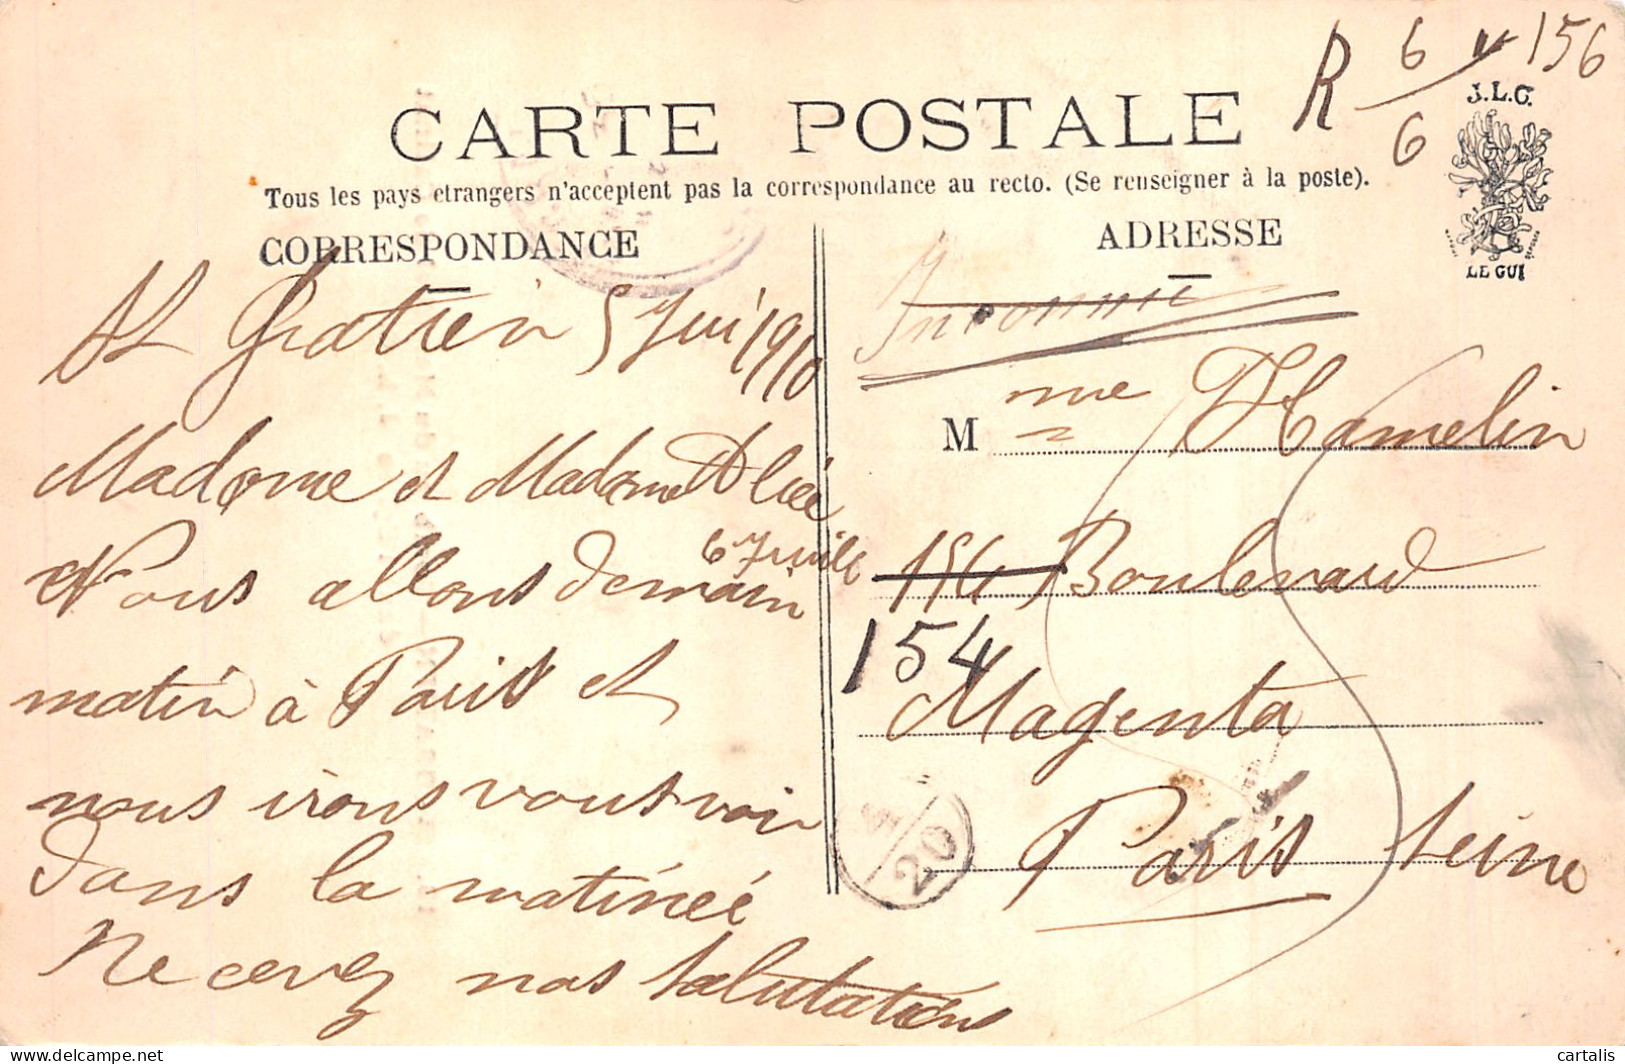 R 6 v 156
6
CARTE POSTALE
J.L.C.
Tous les pays etrangers n'acceptent pas la correspondance au recto. (Se renseigner à la poste).
LE GUI
CORRESPONDANCE
St Gratien 5 Jui 1910
Madame et Madame
Nous allons demain 6 Juill
matin à Paris et
nous irons vous voir
dans la matinéé
Recevez nos salutations
ADRESSE
Inconnue
M me Hamelin
154 Boulevard
154
Magenta
Paris Seine
20
cartalis
delcampe.net